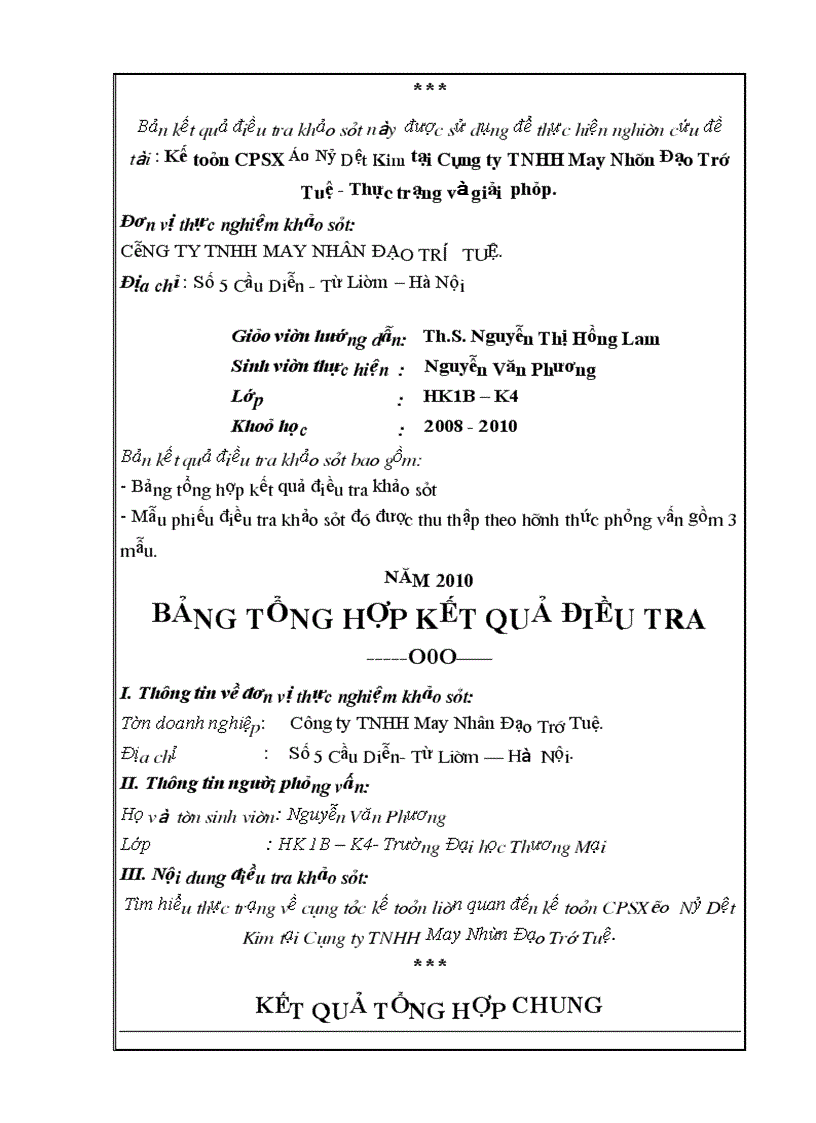 ***
Bản kết quả điều tra khảo sỏt này được sử dụng để thực hiện nghiờn cứu đề
tài : Kế toỏn CPSX Áo Nỷ Dệt Kim tại Cụng ty TNHH May Nhõn Đạo Trớ
Tuệ - Thực trạng và giải phỏp.
Đơn vị thực nghiệm khảo sỏt:
CễNG TY TNHH MAY NHÂN ĐẠO TRÍ TUỆ.
Địa chỉ : Số 5 Cầu Diễn - Từ Liờm – Hà Nội
Giỏo viờn hướng dẫn: Th.S. Nguyễn Thị Hồng Lam
Sinh viờn thực hiện : Nguyễn Văn Phương
Lớp : HK1B – K4
Khoỏ học : 2008 - 2010
Bản kết quả điều tra khảo sỏt bao gồm:
- Bảng tổng hợp kết quả điều tra khảo sỏt
- Mẫu phiếu điều tra khảo sỏt đó được thu thập theo hỡnh thức phỏng vấn gồm 3
mẫu.
NĂM 2010
BẢNG TỔNG HỢP KẾT QUẢ ĐIỀU TRA
-----O0O——
I. Thông tin về đơn vị thực nghiệm khảo sỏt:
Tờn doanh nghiệp: Công ty TNHH May Nhân Đạo Trớ Tuệ.
Địa chỉ : Số 5 Cầu Diễn- Từ Liờm — Hà Nội.
II. Thông tin người phỏng vấn:
Họ và tờn sinh viờn: Nguyễn Văn Phương
Lớp : HK1B – K4- Trường Đại học Thương Mại
III. Nội dung điều tra khảo sỏt:
Tìm hiểu thực trạng về cụng tỏc kế toỏn liờn quan đến kế toỏn CPSX ẽo Nỷ Dệt
Kim tại Cụng ty TNHH May Nhừn Đạo Trớ Tuệ.
***
KẾT QUẢ TỔNG HỢP CHUNG